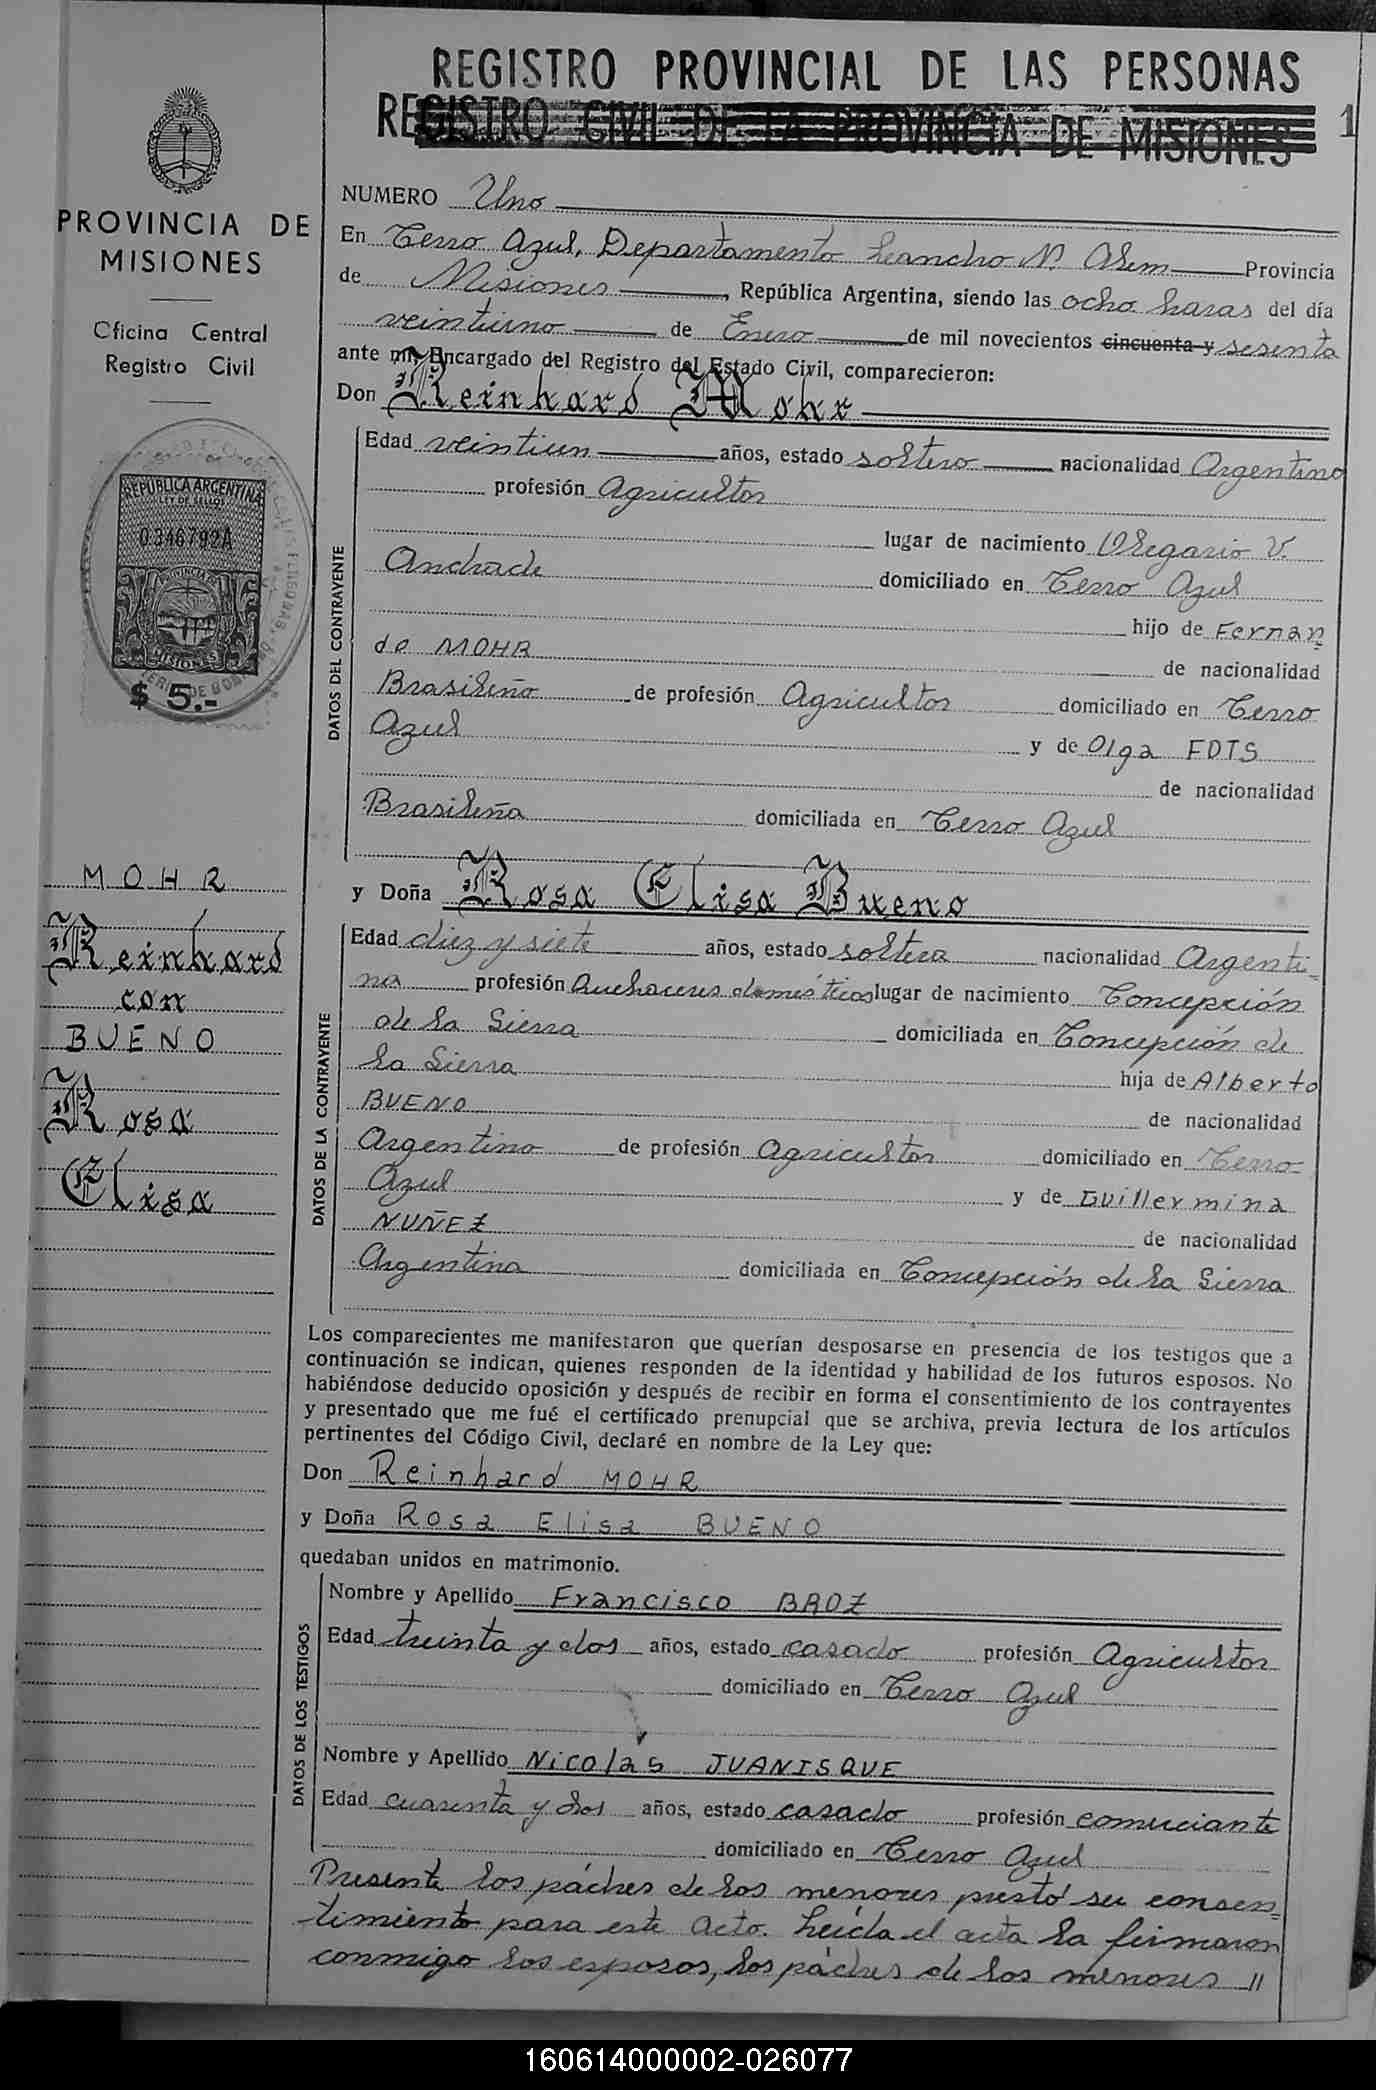 REGISTRO PROVINCIAL DE LAS PERSONAS
REGISTRO CIVIL DE LA PROVINCIA DE MISIONES
1
PROVINCIA DE
MISIONES
Oficina Central
Registro Civil
REPUBLICA ARGENTINA
LEY DE SELLOS
0346792A
PROVINCIA DE
MISIONES
$ 5.-
MOHR
Reinhard
con
BUENO
Rosa
Elisa
NUMERO Uno
En Cerro Azul, Departamento Leandro N. Alem Provincia
de Misiones, República Argentina, siendo las ocho horas del día
veintiuno de Enero de mil novecientos cincuenta y sesenta
ante mí, Encargado del Registro del Estado Civil, comparecieron:
Don Reinhard Mohr
DATOS DEL CONTRAYENTE
Edad veintiun años, estado soltero nacionalidad Argentino
profesión Agricultor
lugar de nacimiento Olegario V.
Andrade domiciliado en Cerro Azul
hijo de Fernan=
do MOHR de nacionalidad
Brasileño de profesión Agricultor domiciliado en Cerro
Azul y de Olga FDTS
de nacionalidad
Brasileña domiciliada en Cerro Azul
y Doña Rosa Elisa Bueno
DATOS DE LA CONTRAYENTE
Edad diez y siete años, estado soltera nacionalidad Argenti=
na profesión Quehaceres domésticos lugar de nacimiento Concepción
de la Sierra domiciliada en Concepción de
la Sierra hija de Alberto
BUENO de nacionalidad
Argentino de profesión Agricultor domiciliado en Cerro
Azul y de Guillermina
NUÑEZ de nacionalidad
Argentina domiciliada en Concepción de la Sierra
Los comparecientes me manifestaron que querían desposarse en presencia de los testigos que a
continuación se indican, quienes responden de la identidad y habilidad de los futuros esposos. No
habiéndose deducido oposición y después de recibir en forma el consentimiento de los contrayentes
y presentado que me fué el certificado prenupcial que se archiva, previa lectura de los artículos
pertinentes del Código Civil, declaré en nombre de la Ley que:
Don Reinhard MOHR
y Doña Rosa Elisa BUENO
quedaban unidos en matrimonio.
DATOS DE LOS TESTIGOS
Nombre y Apellido Francisco BROZ
Edad treinta y dos años, estado casado profesión Agricultor
domiciliado en Cerro Azul
Nombre y Apellido Nicolás JUANISQUE
Edad cuarenta y dos años, estado casado profesión comerciante
domiciliado en Cerro Azul
Presente los pádres de los menores prestó su consen=
timiento para este acto. Leída el acta la firmaron
conmigo los esposos, los pádres de los menores //
160614000002-026077